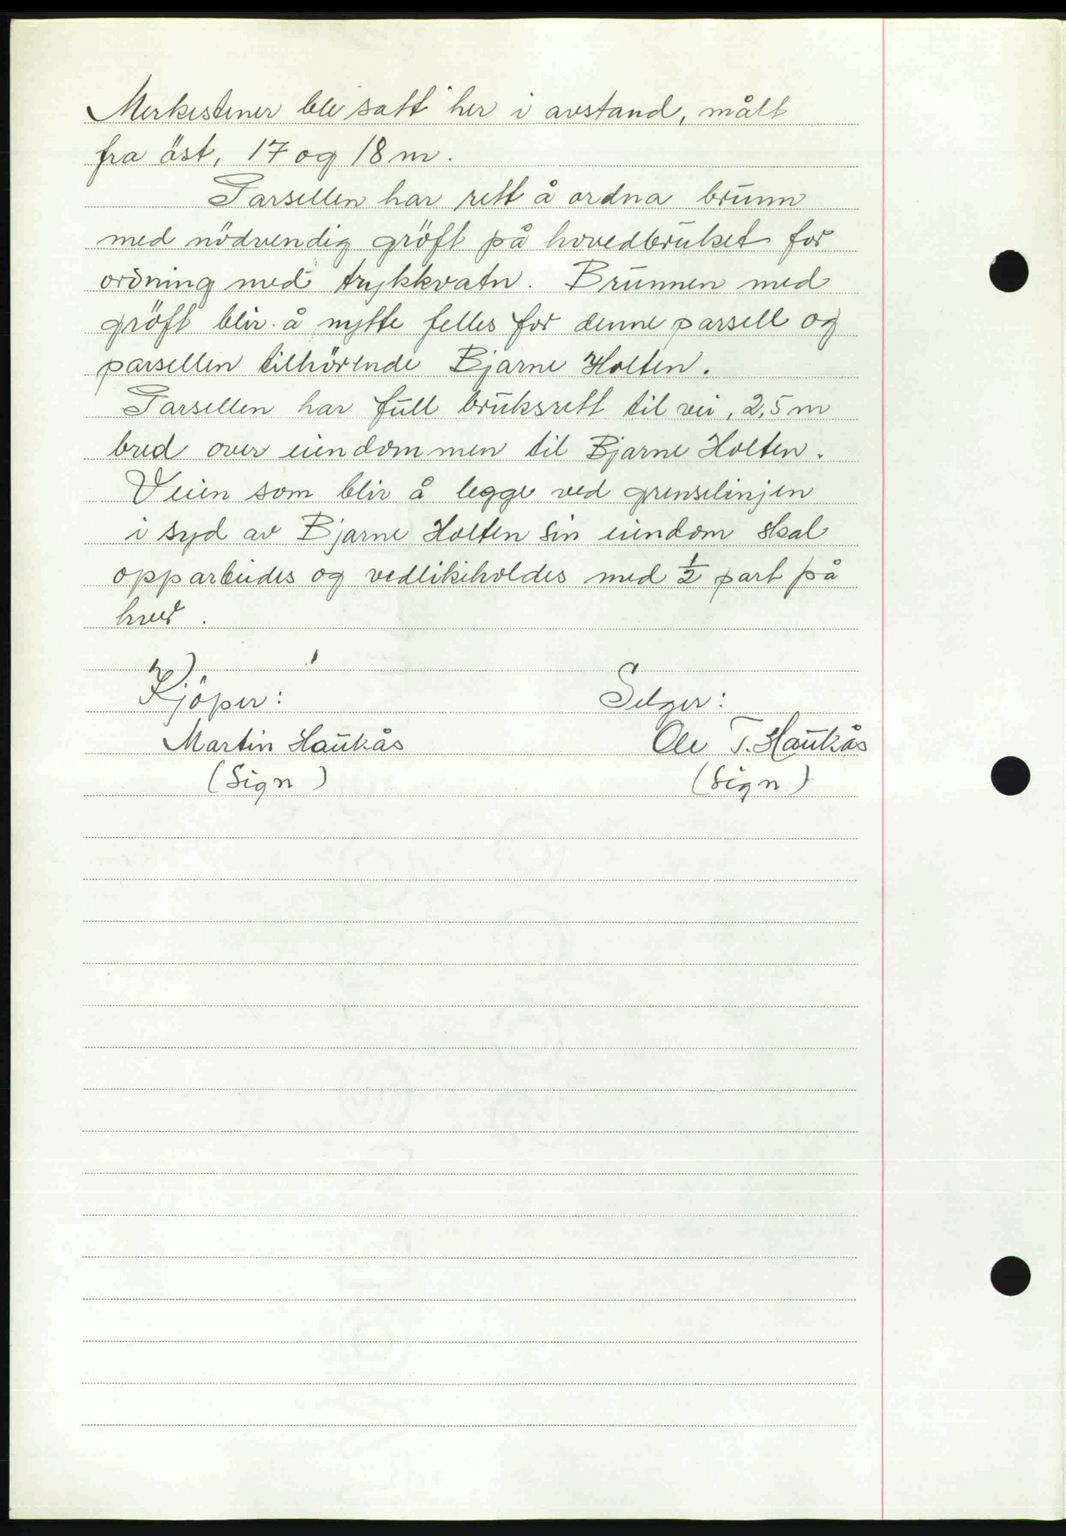 Merkestener ble satt her i avstand, målt
fra öst, 17 og 18 m.
Parsellen har rett å ordna brunn
med nödvendig gröft på hovedbruket for
ordning med trykkvatn. Brunnen med
gröft blir å nytte felles for denne parsell og
parsellen tilhörende Bjarne Holten.
Parsellen har full bruksrett til vei, 2,5 m
bred over eiendommen til Bjarne Holten.
Veien som blir å legge ved grenselinjen
i syd av Bjarne Holten sin eiendom skal
opparbeides og vedlikeholdes med 1/2 part på
hver.
Kjöper: Selger:
Martin Haukås Ole T. Haukås
(Sign) (Sign)